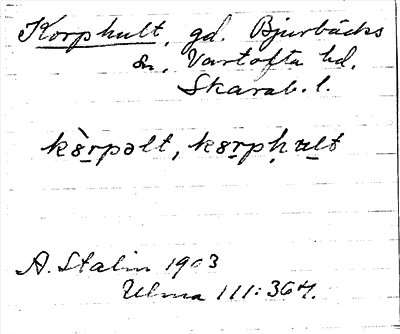 Korphult, gd. Bjurbäcks
sn, Vartofta hd,
Skarab. l.
kȣ̀rpəlt, kȣrpḥult
A. Stalin 1903
Ulma 111:364.